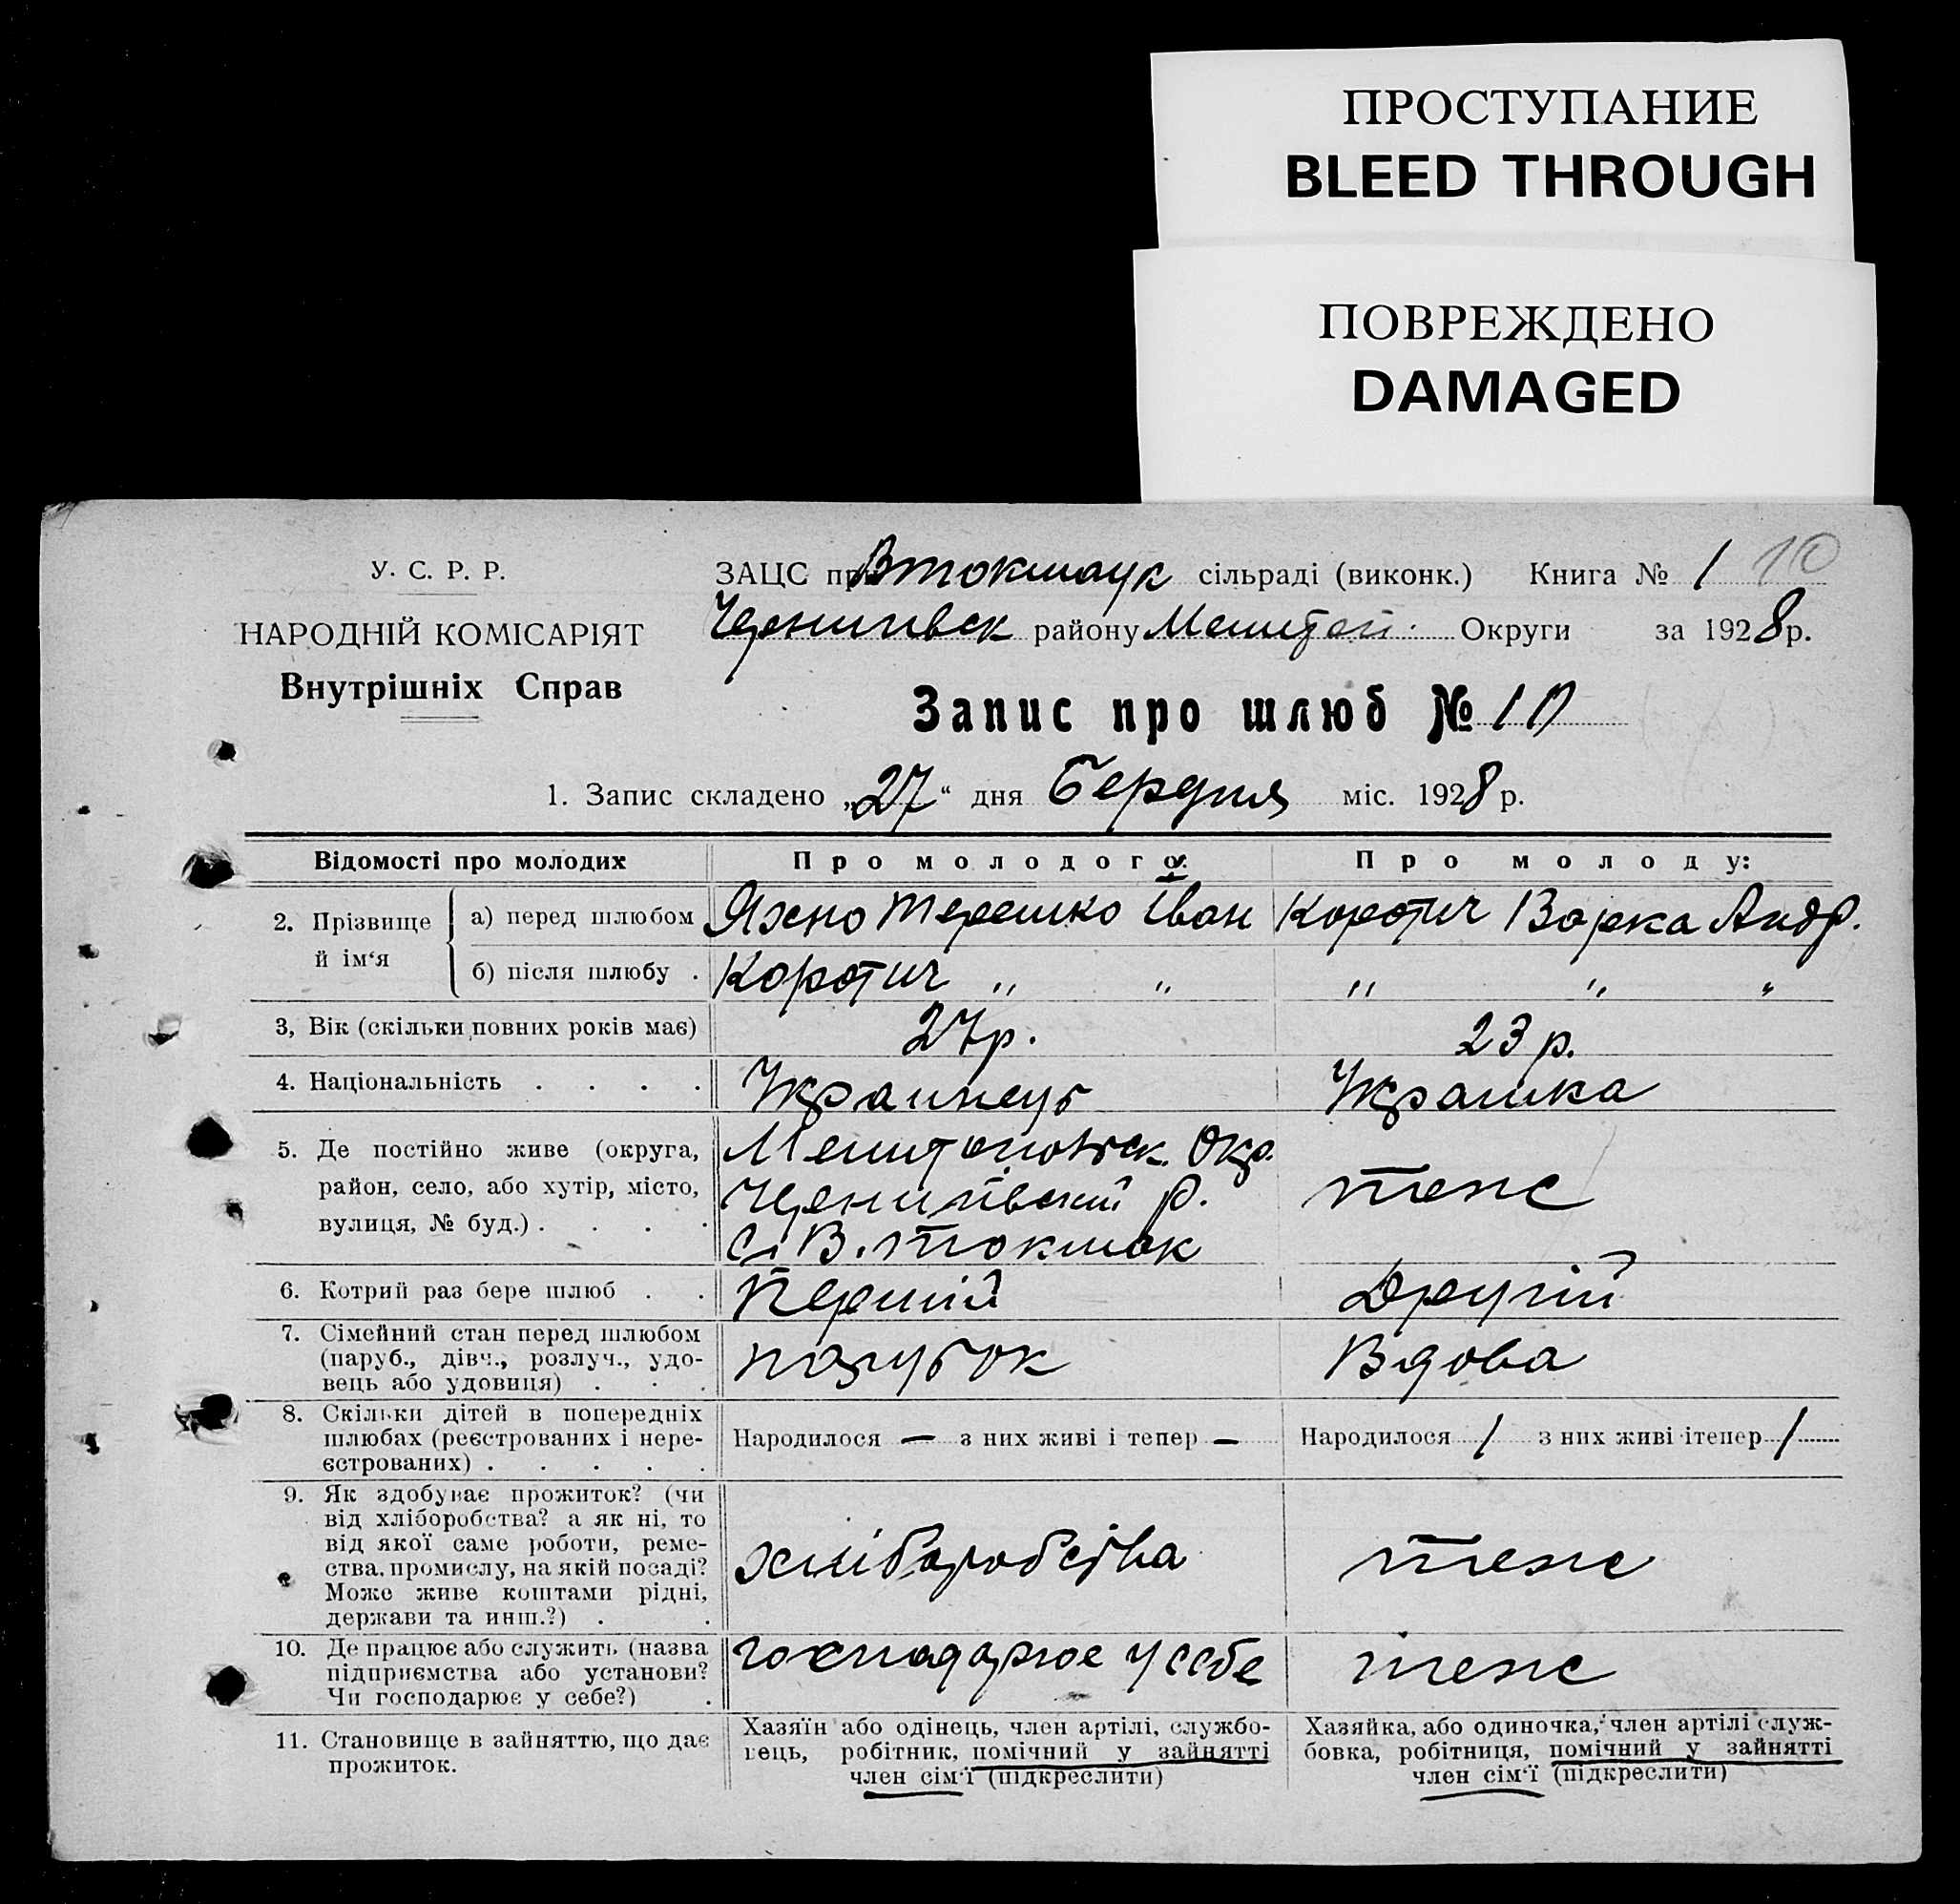 ПРОСТУПАНИЕ
BLEED THROUGH
ПОВРЕЖДЕНО
DAMAGED
У. С. Р. Р.
НАРОДНІЙ КОМІСАРІЯТ
Внутрішніх Справ
ЗАЦС при Втокмацк сільраді (виконк.) Книга № 1 10
Чернигівск району Мелитоп. Округи за 1928 р.
Запис про шлюб № 10
1. Запис складено „27“ дня Бердня міс. 1928 р.
Відомості про молодих Про молодого: Про молоду:
2. Прізвище й ім‘я
а) перед шлюбом Яхно Терешко Іван Коротич Варка Андр.
б) після шлюбу . Коротич " " " " "
3, Вік (скільки повних років має) 27 р. 23 р.
4. Національність . . . . Українець Українка
5. Де постійно живе (округа, район, село, або хутір, місто, вулиця, № буд.) . . . .
Мелитопольск. Окр.
Чернигівский р.
с. В. Токмак
теж
6. Котрий раз бере шлюб . . Перший Другій
7. Сімейний стан перед шлюбом
(паруб., дівч., розлуч., удо-
вець або удовиця) . . .
парубок Вдова
8. Скільки дітей в попередніх
шлюбах (реєстрованих і нере-
єстрованих) . . . . .
Народилося — з них живі і тепер — Народилося 1 з них живі ітепер 1
9. Як здобуває прожиток? (чи
від хліборобства? а як ні, то
від якої саме роботи, реме-
ства, промислу, на якій посаді?
Може живе коштами рідні,
держави та инш.?) . .
хліборобства теж
10. Де працює або служить (назва
підприємства або установи?
Чи господарює у себе?) .
господарює у себе теж
11. Становище в зайняттю, що дає
прожиток.
Хазяїн або одінець, член артілі, службо-
вець, робітник, помічний у зайнятті
член сім‘ї (підкреслити)
Хазяйка, або одиночка, член артілі служ-
бовка, робітниця, помічний у зайнятті
член сім‘ї (підкреслити)